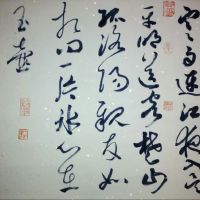 寒雨連江夜入吳
平明送客楚山
孤洛陽親友如
相問一片冰心在
玉壺